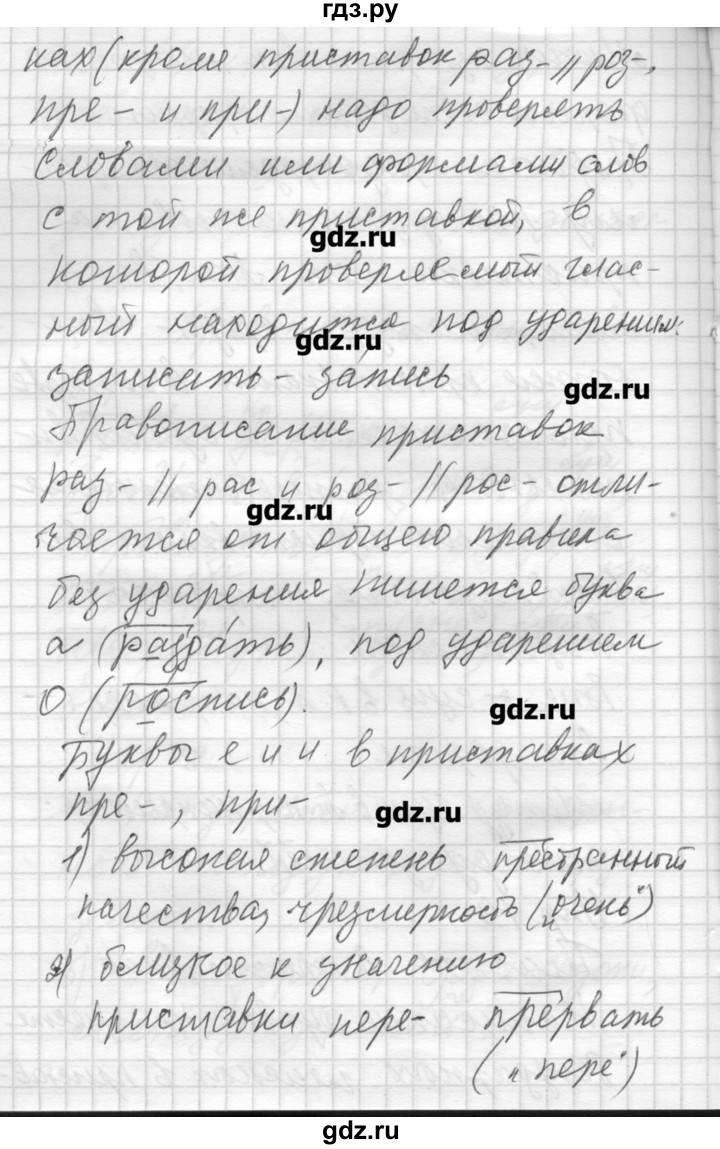 гдз.ру
ках (кроме приставок раз- // роз-,
пре- и при-) надо проверять
словами или формами слов
с той же приставкой, в
gdz.ru
которой проверяемый глас-
ный находится под ударением:
gdz.ru
записать - за́пись
gdz.ru
Правописание приставок
раз- // рас и роз- // рос- отли-
gdz.ru
чается от общего правила
без ударения пишется буква
а (разда́ть), под ударением
о (роспись).
gdz.ru
Буквы е и и в приставках
пре-, при-
gdz.ru
1) высокая степень престранный
качества, чрезмерность („очень")
2) близкое к значению
приставки пере- прервать
(„пере")
gdz.ru